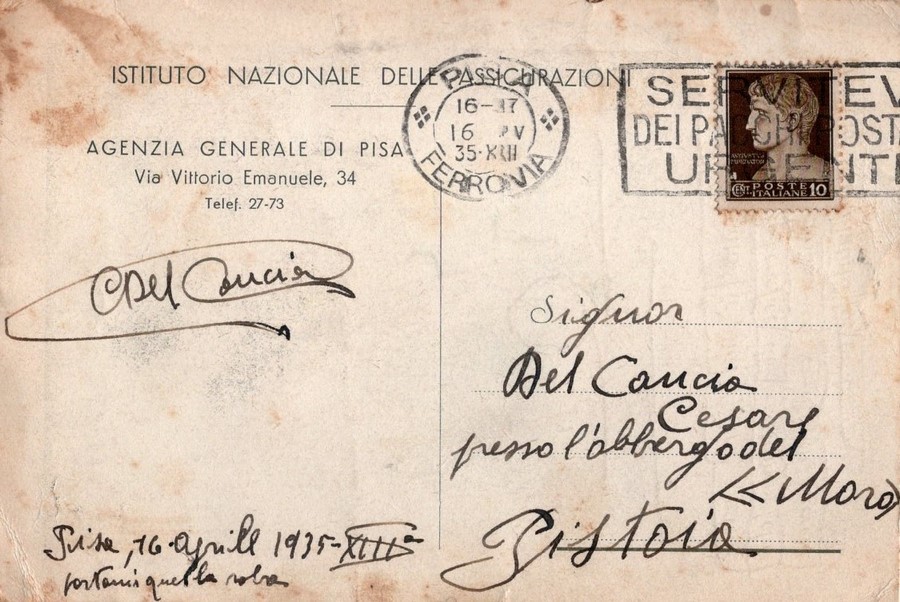 ISTITUTO NAZIONALE DELLE ASSICURAZIONI
AGENZIA GENERALE DI PISA
Via Vittorio Emanuele, 34
Telef. 27-73
PISA
16-17
16 PV
35·XIII
FERROVIA
SERVITEV
DEI PACCHI POSTA
URGENTI
POSTE
CENT. ITALIANE 10
CDel Caucia
Signor
Del Caucia
Cesare
presso l'abbergo del
<< Moro
Pistoia
Pisa, 16·Aprile 1935-XIIIª
portami quella roba